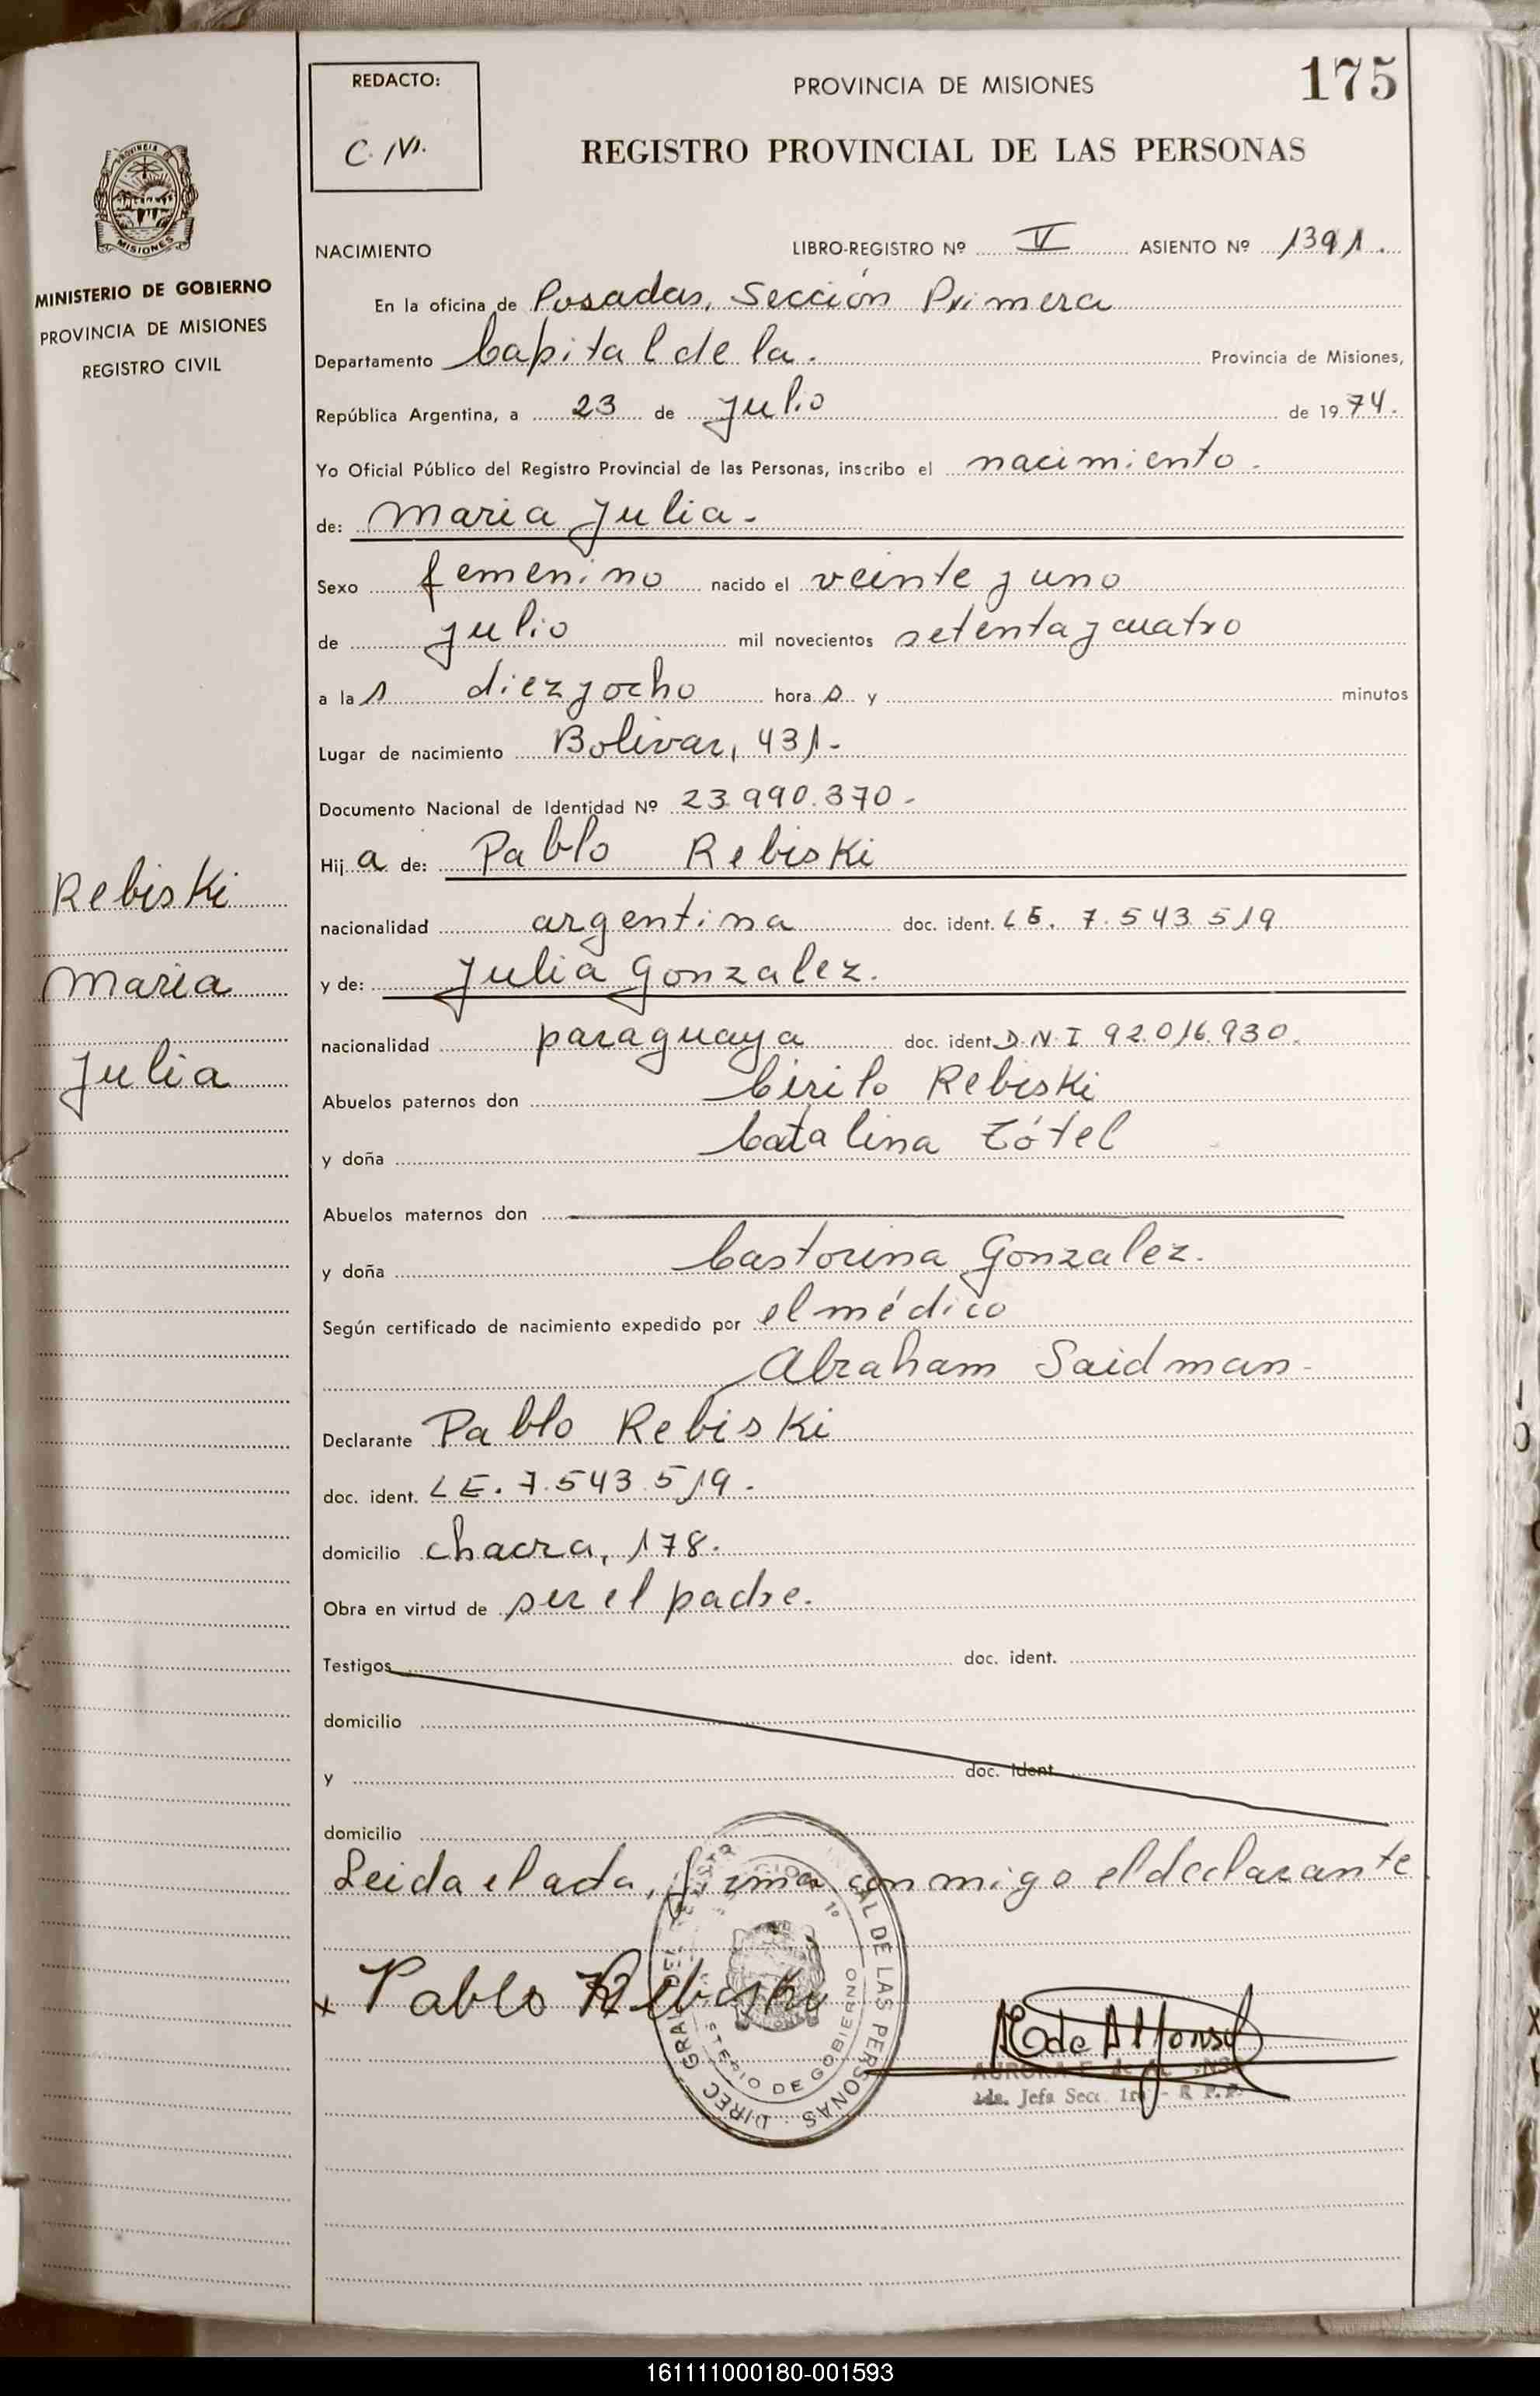 175
REDACTO:
PROVINCIA DE MISIONES
REGISTRO PROVINCIAL DE LAS PERSONAS
MISIONES
MINISTERIO DE GOBIERNO
PROVINCIA DE MISIONES
REGISTRO CIVIL
NACIMIENTO LIBRO-REGISTRO Nº V ASIENTO Nº 1391.
En la oficina de Posadas, Sección Primera
Departamento Capital de la. Provincia de Misiones,
República Argentina, a 23 de Julio de 1974.
Yo Oficial Público del Registro Provincial de las Personas, inscribo el nacimiento.
de: Maria Julia.-
Sexo femenino nacido el veinte y uno
de julio mil novecientos setenta y cuatro
a las diez y ocho horas y minutos
Lugar de nacimiento Bolivar, 431.-
Documento Nacional de Identidad Nº 23.990.370-
Hija de: Pablo Rebiski
nacionalidad argentina doc. ident. LE. 7.543.519
y de: Julia Gonzalez.
nacionalidad paraguaya doc. ident D.N.I 92.016.930.
Abuelos paternos don Cirilo Rebiski
y doña Catalina Tótel
Abuelos maternos don
y doña Castorina Gonzalez.
Según certificado de nacimiento expedido por el médico
Abraham Saidman-
Declarante Pablo Rebiski
doc. ident. LE. 7.543.519.
domicilio chacra, 178.
Obra en virtud de ser el padre.
Testigos doc. ident.
domicilio
y doc. ident.
domicilio
Leida el acta, firma conmigo el declarante
x Pablo Rebiski
E de Alfonso
Jefa Secc. 1ra - R P.P.
DIREC GRAL DEL REGISTR AL DE LAS PERSONAS
STERIO DE GOBIERNO
Rebiski
Maria
Julia
161111000180-001593